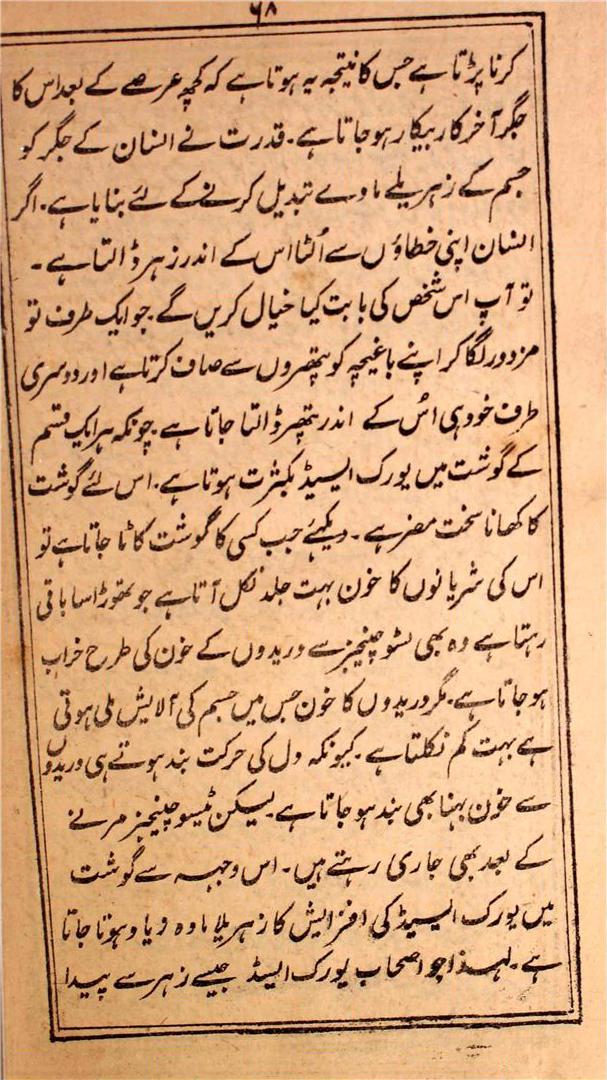 ۶۸
کرنا پڑتا ہے جس کا نتیجہ یہ ہوتا ہے کہ کچھ عرصے کے بعد اس کا
جگر آخر کار بیکار ہو جاتا ہے۔ قدرت نے انسان کے جگر کو
جسم کے زہریلے مادے تبدیل کرنے کے لئے بنایا ہے۔ اگر
انسان اپنی خطاؤں سے اُلٹا اس کے اندر زہر ڈالتا ہے۔
تو آپ اس شخص کی بابت کیا خیال کریں گے۔ جو ایک طرف تو
مزدور لگا کر اپنے باغیچہ کو پتھروں سے صاف کرتا ہے اور دوسری
طرف خود ہی اُس کے اندر پتھر ڈالتا جاتا ہے۔ چونکہ ہر ایک قسم
کے گوشت میں یورک ایسیڈ بکثرت ہوتا ہے۔ اس لئے گوشت
کا کھانا سخت مضر ہے۔ دیکھئے جب کسی کا گوشت کاٹا جاتا ہے تو
اس کی شریانوں کا خون بہت جلد نکل آتا ہے جو تھوڑا سا باقی
رہتا ہے وہ بھی ٹشو چینجیز سے وریدوں کے خون کی طرح خراب
ہو جاتا ہے۔ مگر وریدوں کا خون جس میں جسم کی آلایش ملی ہوتی
ہے بہت کم نکلتا ہے۔ کیونکہ دل کی حرکت بند ہوتے ہی وریدوں
سے خون بہنا بھی بند ہو جاتا ہے۔ لیکن ٹیسو چینجیز مرنے
کے بعد بھی جاری رہتے ہیں۔ اس وجہہ سے گوشت
میں یورک ایسیڈ کی افزایش کا زہریلا مادہ زیادہ ہوتا جاتا
ہے۔ لہذا جو اصحاب یورک ایسڈ جیسے زہر سے پیدا